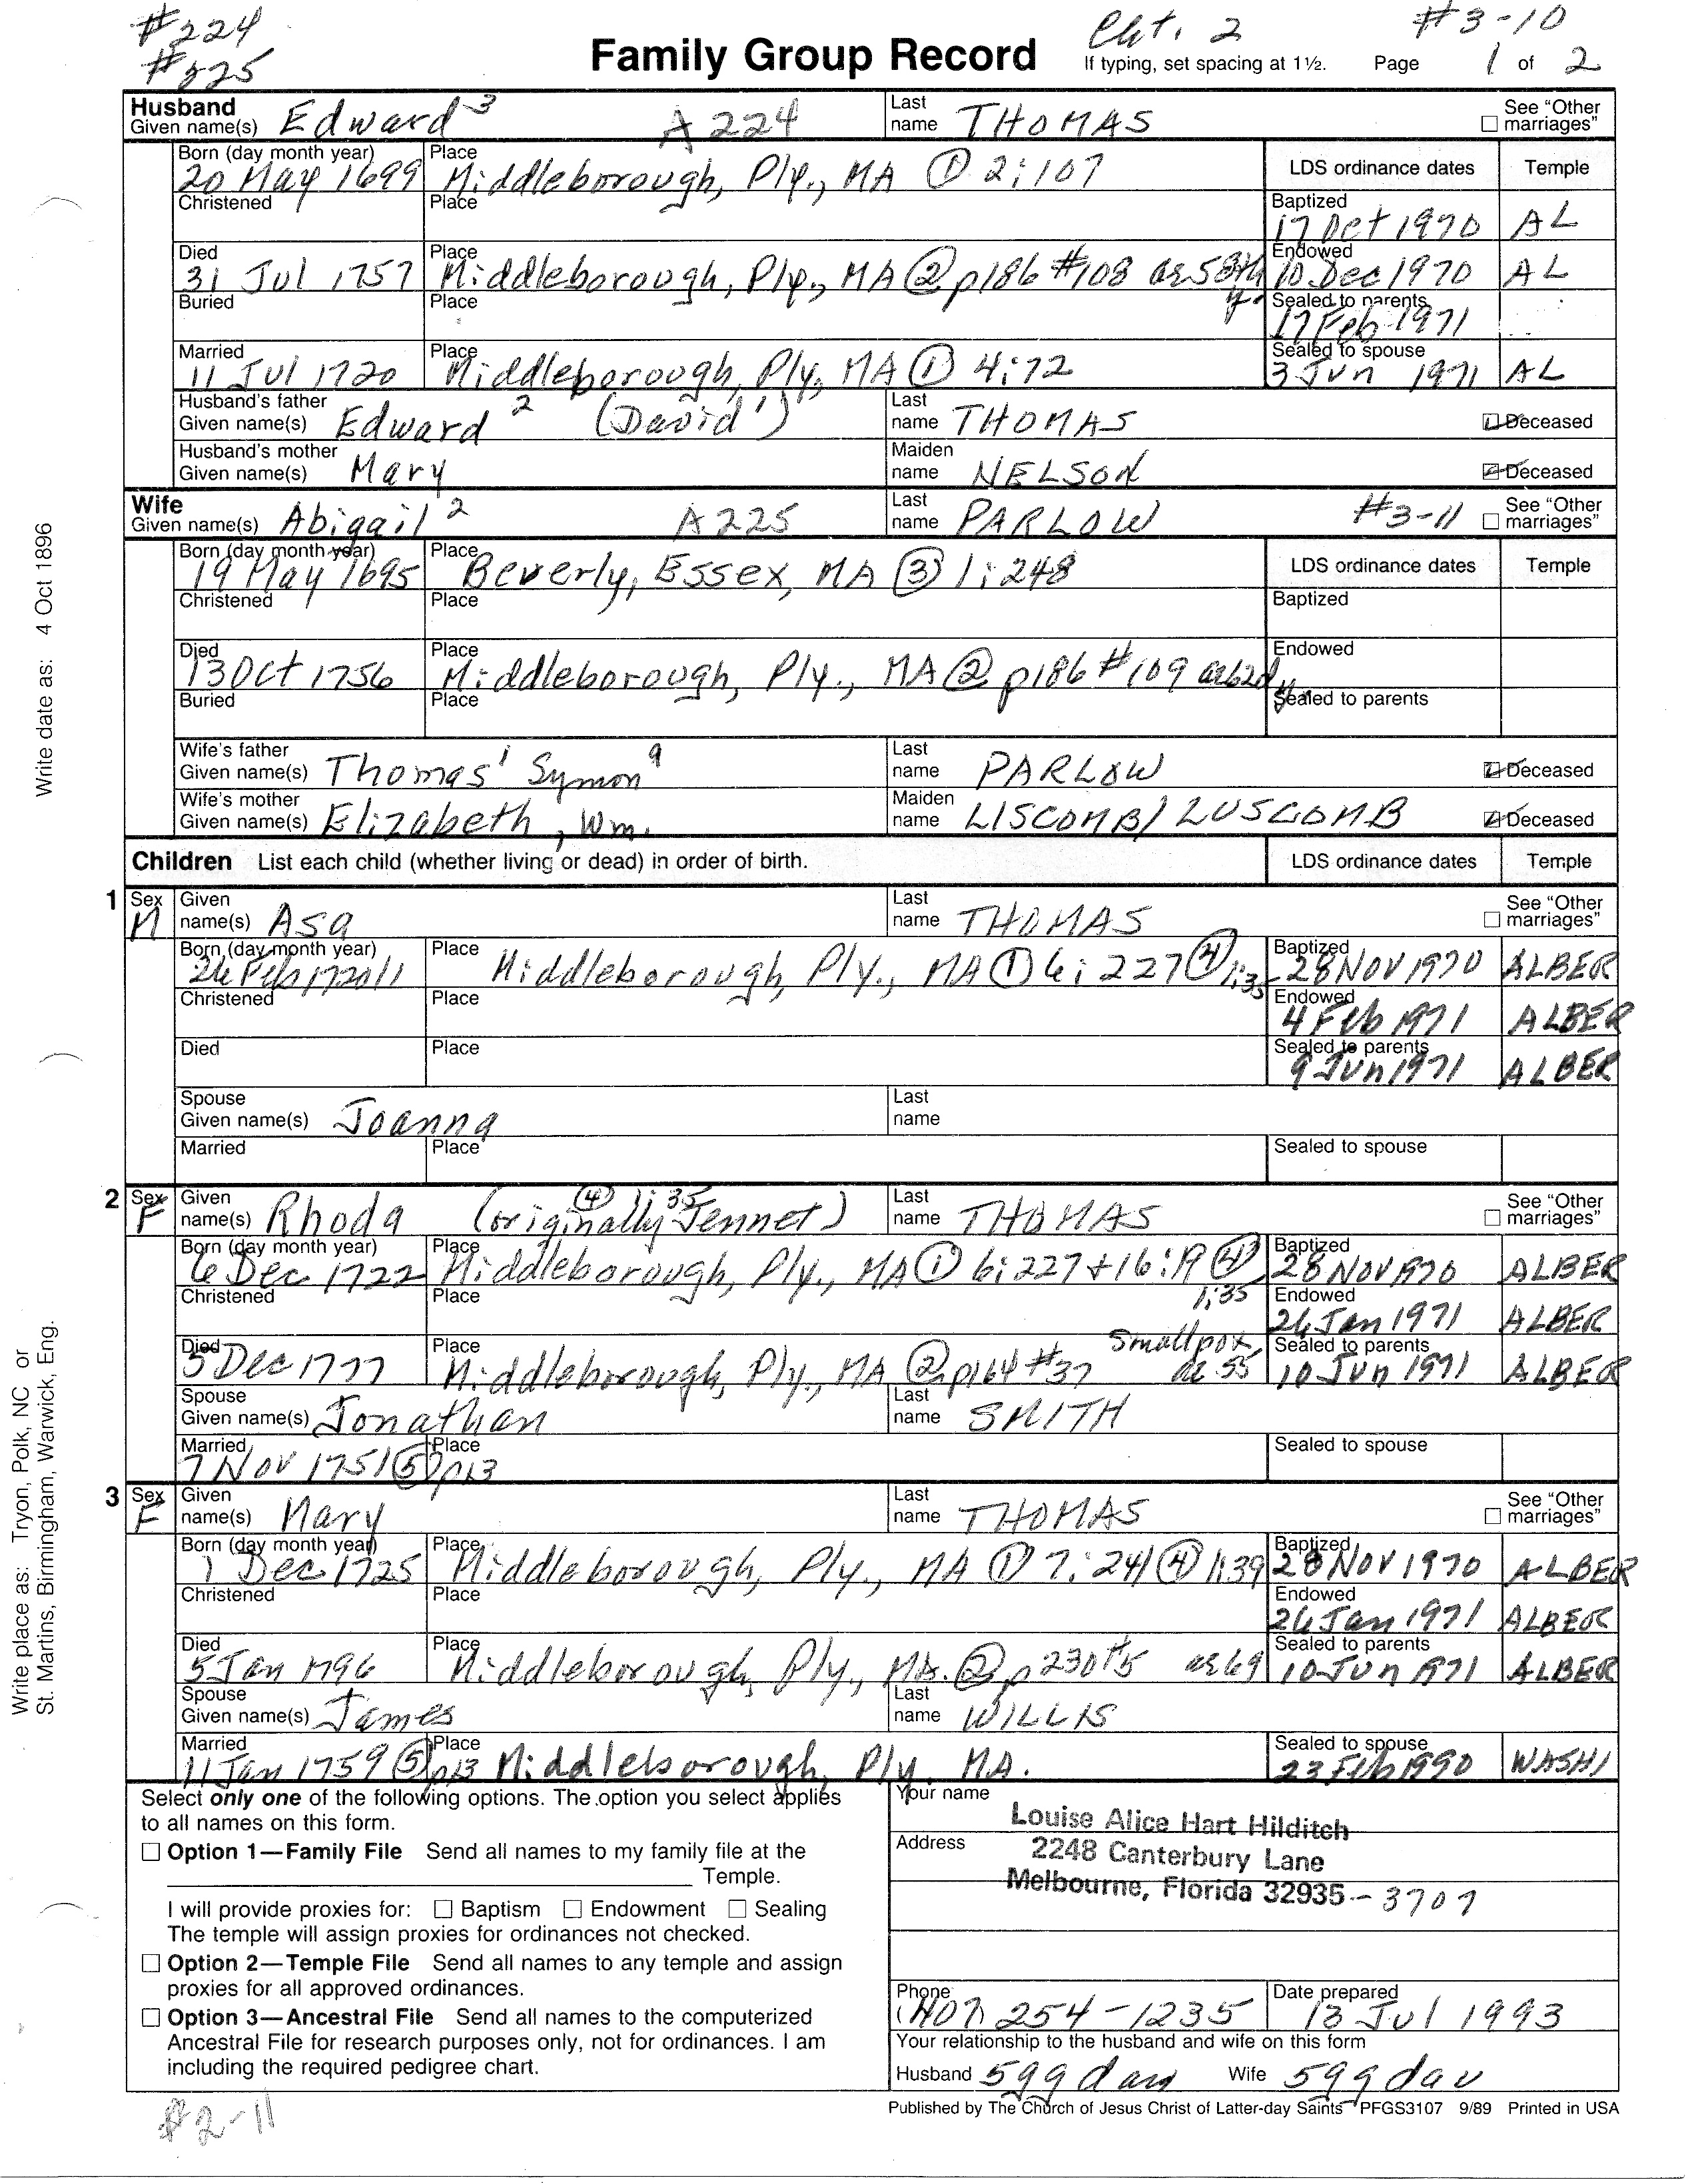 #224
#225
Cht. 2
#3-10
Family Group Record
If typing, set spacing at 1½.
Page 1 of 2
Husband
Given name(s) Edward 3 A224
Last name THOMAS
See "Other marriages"
Born (day month year) 20 May 1699
Place Middleborough, Ply., MA ① 2:107
LDS ordinance dates
Temple
Christened
Place
Baptized 17 Oct 1970 AL
Died 31 Jul 1757
Place Middleborough, Ply., MA ② p186 #108 ae 58th yr
Endowed 10 Dec 1970 AL
Buried
Place
Sealed to parents 17 Feb 1971
Married 11 Jul 1720
Place Middleborough, Ply, MA ① 4:72
Sealed to spouse 3 Jun 1971 AL
Husband's father
Given name(s) Edward 2 (David 1)
Last name THOMAS
Deceased
Husband's mother
Given name(s) Mary
Maiden name NELSON
Deceased
Wife
Given name(s) Abigail 2 A225
Last name PARLOW
#3-11
See "Other marriages"
Born (day month year) 19 May 1695
Place Beverly, Essex, MA ③ 1:248
LDS ordinance dates
Temple
Christened
Place
Baptized
Died 13 Oct 1756
Place Middleborough, Ply., MA ② p186 #109
Endowed
Buried
Place
Sealed to parents
Wife's father
Given name(s) Thomas 1 Symon
Last name PARLOW
Deceased
Wife's mother
Given name(s) Elizabeth, Wm.
Maiden name LISCOMB/LUSCOMB
Deceased
Children List each child (whether living or dead) in order of birth.
LDS ordinance dates
Temple
1 Sex M
Given name(s) Asa
Last name THOMAS
See "Other marriages"
Born (day month year) 26 Feb 1720/1
Place Middleborough, Ply., MA ① 6:227 ④ 1:35
Baptized 28 NOV 1970 ALBER
Christened
Place
Endowed 4 Feb 1971 ALBER
Died
Place
Sealed to parents 9 Jun 1971 ALBER
Spouse
Given name(s) Joanna
Last name
Married
Place
Sealed to spouse
2 Sex F
Given name(s) Rhoda (originally Jennet) ④ 1:35
Last name THOMAS
See "Other marriages"
Born (day month year) 6 Dec 1722
Place Middleborough, Ply., MA ① 6:227 + 16:19 ④ 1:35
Baptized 28 NOV 1970 ALBER
Christened
Place
Endowed 26 Jan 1971 ALBER
Died 5 Dec 1777
Place Middleborough, Ply., MA ② p164 #37 Smallpox ae 55
Sealed to parents 10 Jun 1971 ALBER
Spouse
Given name(s) Jonathan
Last name SMITH
Married 7 Nov 1751 ⑤ p13
Place
Sealed to spouse
3 Sex F
Given name(s) Mary
Last name THOMAS
See "Other marriages"
Born (day month year) 1 Dec 1725
Place Middleborough, Ply., MA ① 7:241 ④ 1:39
Baptized 28 NOV 1970 ALBER
Christened
Place
Endowed 26 Jan 1971 ALBER
Died 5 Jan 1796
Place Middleborough, Ply., MA. ② p230 #5 ae 69
Sealed to parents 10 Jun 1971 ALBER
Spouse
Given name(s) James
Last name WILLIS
Married 11 Jan 1759 ⑤ p13
Place Middleborough, Ply. MA.
Sealed to spouse 23 Feb 1990 WASHI
Select only one of the following options. The option you select applies
to all names on this form.
Option 1—Family File Send all names to my family file at the
Temple.
I will provide proxies for: Baptism Endowment Sealing
The temple will assign proxies for ordinances not checked.
Option 2—Temple File Send all names to any temple and assign
proxies for all approved ordinances.
Option 3—Ancestral File Send all names to the computerized
Ancestral File for research purposes only, not for ordinances. I am
including the required pedigree chart.
Your name Louise Alice Hart Hilditch
Address 2248 Canterbury Lane
Melbourne, Florida 32935-3707
Phone (407) 254-1235
Date prepared 13 Jul 1993
Your relationship to the husband and wife on this form
Husband 5 gg dau Wife 5 gg dau
Published by The Church of Jesus Christ of Latter-day Saints PFGS3107 9/89 Printed in USA
#2-11
Write date as: 4 Oct 1896
Write place as: Tryon, Polk, NC or
St. Martins, Birmingham, Warwick, Eng.